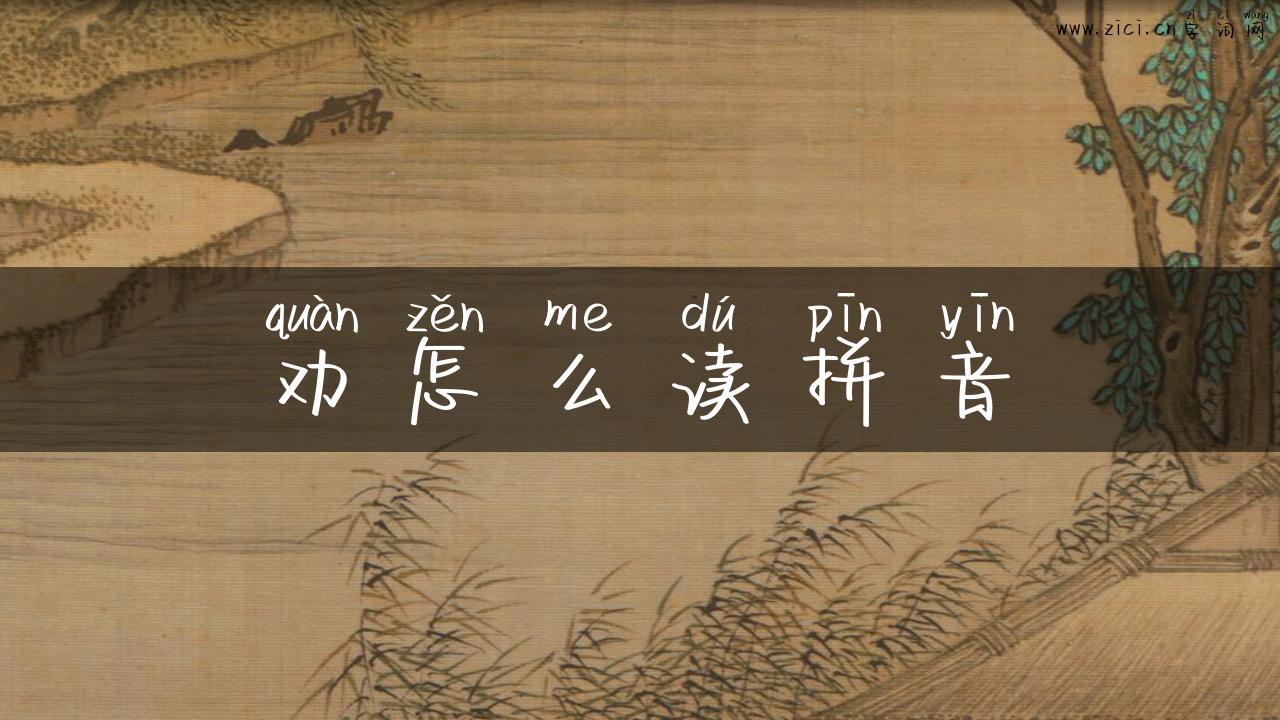 zì cí wǎng
www.zici.cn字词网
quàn zěn me dú pīn yīn
劝怎么读拼音